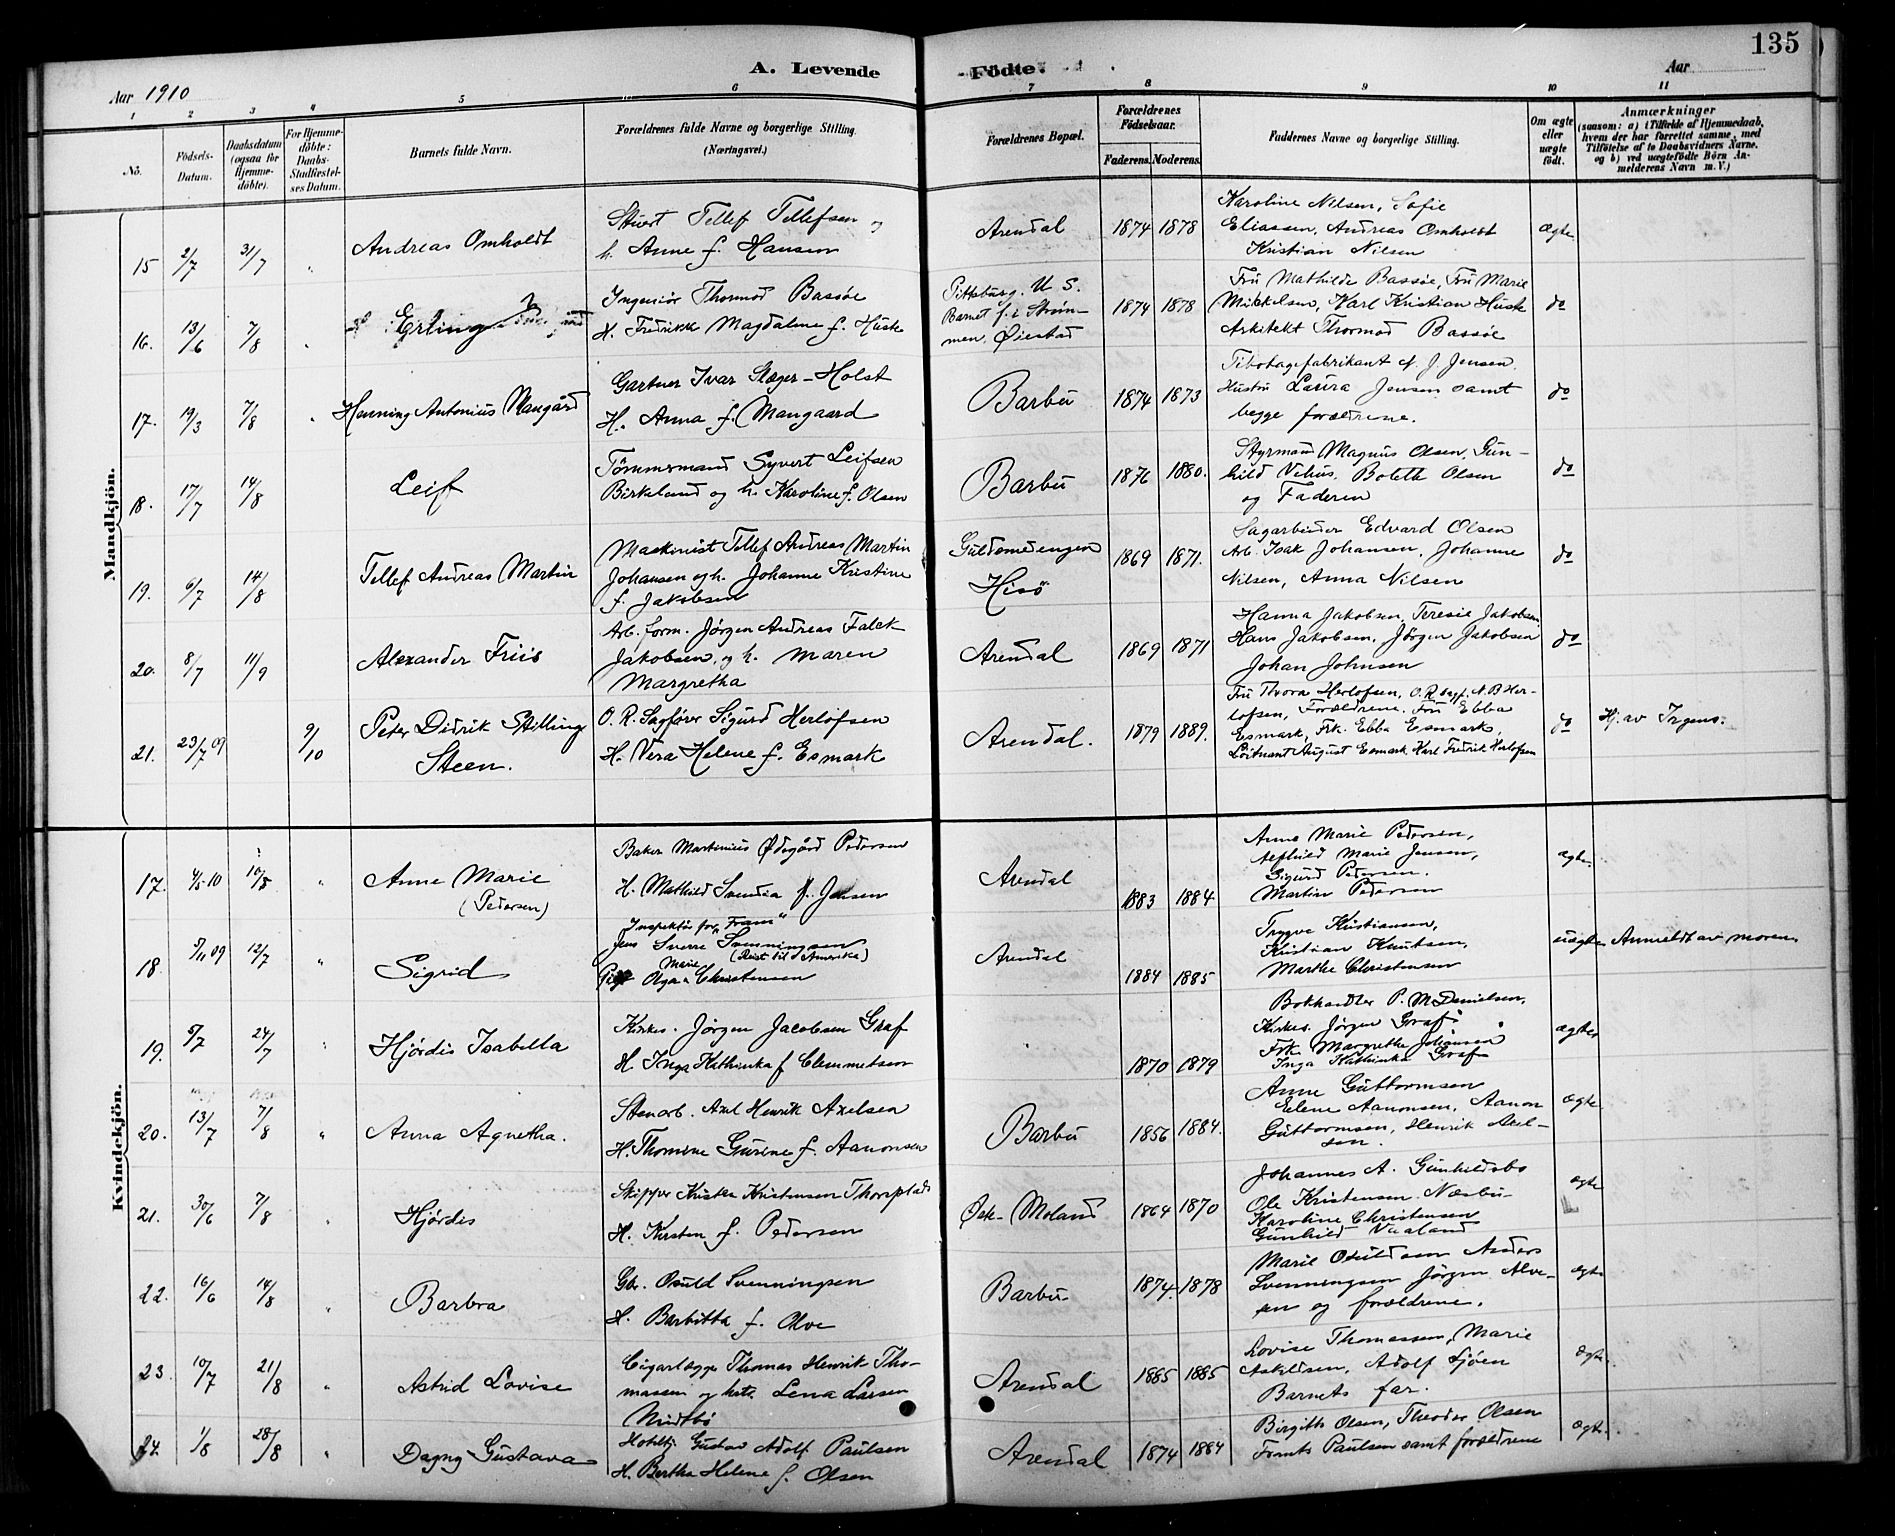 135
A. Levende Födte.
Aar 1910
Aar
1 2 3 4 5 6 7 8 9 10 11
No.
Födsels-Datum.
Daabsdatum (ogsaa for Hjemme-döbte).
For Hjemme-döbte: Daabs-Stadfæstel-ses Datum.
Barnets fulde Navn.
Forældrenes fulde Navne og borgerlige Stilling. (Næringsvei.)
Forældrenes Bopæl.
Forældrenes Födselsaar.
Faderens. Moderens.
Faddernes Navne og borgerlige Stilling.
Om ægte eller uægte födt.
Anmærkninger
(saasom: a) i Tilfælde af Hjemmedaab, hvem der har forrettet samme, med Tilföielse af to Daabsvidners Navne, og b) ved uægtefödte Börn An-melderens Navn m. V.)
Mandkjön.
15 2/7 31/7 Andreas Omholdt
Stuert Tellef Tellefsen og
h. Anne f. Hansen
Arendal 1874 1878
Karoline Nilsen, Sofie
Eliassen, Andreas Omholdt
Kristian Nilsen
Ægte
16. 13/6 7/8 Erling
Ingeniör Thormod Bassöe
H. Fredrikke Magdalene f. Huske
Pittsburg. U. S.
Barnet f. i Strøm-
men, Øiestad
1874 1878
Fru Mathilde Bassöe, Fru Marie
Mikkelsen, Karl Kristian Huske
Arkitekt Thormod Bassöe
do
17. 19/3 7/8 Henning Antonius Mangård
Gartner Ivar Slæger-Holst
H. Anna f. Mangaard
Barbu 1874 1873
J. Jensen.
Hustru Laura Jensen samt
begge forældrene.
do
18. 17/7 14/8 Leif
Tömmermand Syvert Leifsen
Birkeland og h. Karoline f. Olsen
Barbu 1876 1880.
Styrmand Magnus Olsen, Gun-
hild Vehus, Botelle Olsen
og Faderen
do
19. 6/7 14/8 Tellef Andreas Martin
Maskinist Tellef Andreas Martin
Johansen og h. Johanne Kristine
f. Jakobsen
Guldsmedengen
Hisö
1869 1871.
Sagarbeider Edvard Olsen
Arb. Isak Johansen, Johanne
Nilsen, Anna Nilsen
do
20. 8/7 11/9 Alexander Friis
Arb. form. Jörgen Andreas Falck
Jakobsen, og h. Maren
Margretha
Arendal 1869 1871
Hanna Jakobsen, Teresie Jakobsen
Hans Jakobsen, Jörgen Jakobsen
Johan Johnsen
do
21. 23/7 09 9/10 Peter Didrik Stilling
Steen.
O. R. Sagförer Sigurd Herlofsen
H. Vera Helene f. Esmark
Arendal. 1879 1889.
Fru Thora Herlofsen, O. R. sagf. N. B Her-
lofsen, Forældrene, Fru Ebba
Esmark, Frk. Ebba Esmark,
Löitnant August Esmark, Karl Fredrik Herlofsen
do
Hj. av Irgens.
Kvindekjön.
17. 4/5 10 10/8 Anne Marie
(Pedersen)
Baker Martinius Ødegård Pedersen
H. Mathild f. Jensen
Arendal 1883 1884
Anne Marie Pedersen,
Marie Jensen,
Sigurd Pedersen.
Martin Pedersen
ægte
18. 5/11 09 12/7 Sigrid
Inspektör for "Fram"
Jens Sverre Svenningsen
(Reist til Amerika)
Pige Olga Marie Christensen
Arendal 1884 1885
Trygve Kristiansen,
Kristian Knutsen,
Marthe Christensen
uægte Anmeldt av moren
19. 5/7 24/7 Hjördis Isabella
Kirkes. Jörgen Jacobsen Graf
H. Inga Kathinka f Clemmetsen
1870 1879
Bokhandler P. M Danielsen,
Kirkes. Jörgen Graf
Frk. Margrethe Johansen
Inga Kathinka Graf
ægte
20. 13/7 7/8 Anna Agnetha.
Stenarb. Axel Henrik Axelsen
H. Thomine Gurine f. Aanonsen
Barbu 1856 1884.
Anne Guttormsen
Elene Aanonsen, Aanon
Guttormsen, Henrik Axel-
sen.
ægte
21. 30/6 7/8 Hjördis
Skipper Kristen Kristensen Thorsplads
H. Kirsten f. Pedersen
Øst-Moland 1864 1870
Johannes A. Gunhildsbo
Ole Kristensen Næsbu
Karoline Christensen
Gunhild Vaaland
ægte
22. 16/6 14/8 Barbra
Gbr. Osuld Svenningsen
H. Barbitta f. Alve
Barbu 1874. 1878
Marie Osuldsen Anders
Svenningsen Jörgen Alve-
sen og forældrene.
ægte
23. 10/7 21/8 Astrid Lovise
Cigarlægger Thomas Henrik Tho-
massen og hstr. Lena Larsen
Nidtbö
Arendal 1885 1885
Lovise Thomassen, Marie
Askildsen, Adolf Sjöen
Barnets far.
ægte
24. 1/8 28/8 Dagny Gustava
Hotelbj Gustav Adolf Paulsen
H. Bertha Helene f. Olsen
Arendal 1874 1884
Birgith Olsen, Theodor Olsen
Frants Paulsen samt forældrene
ægte